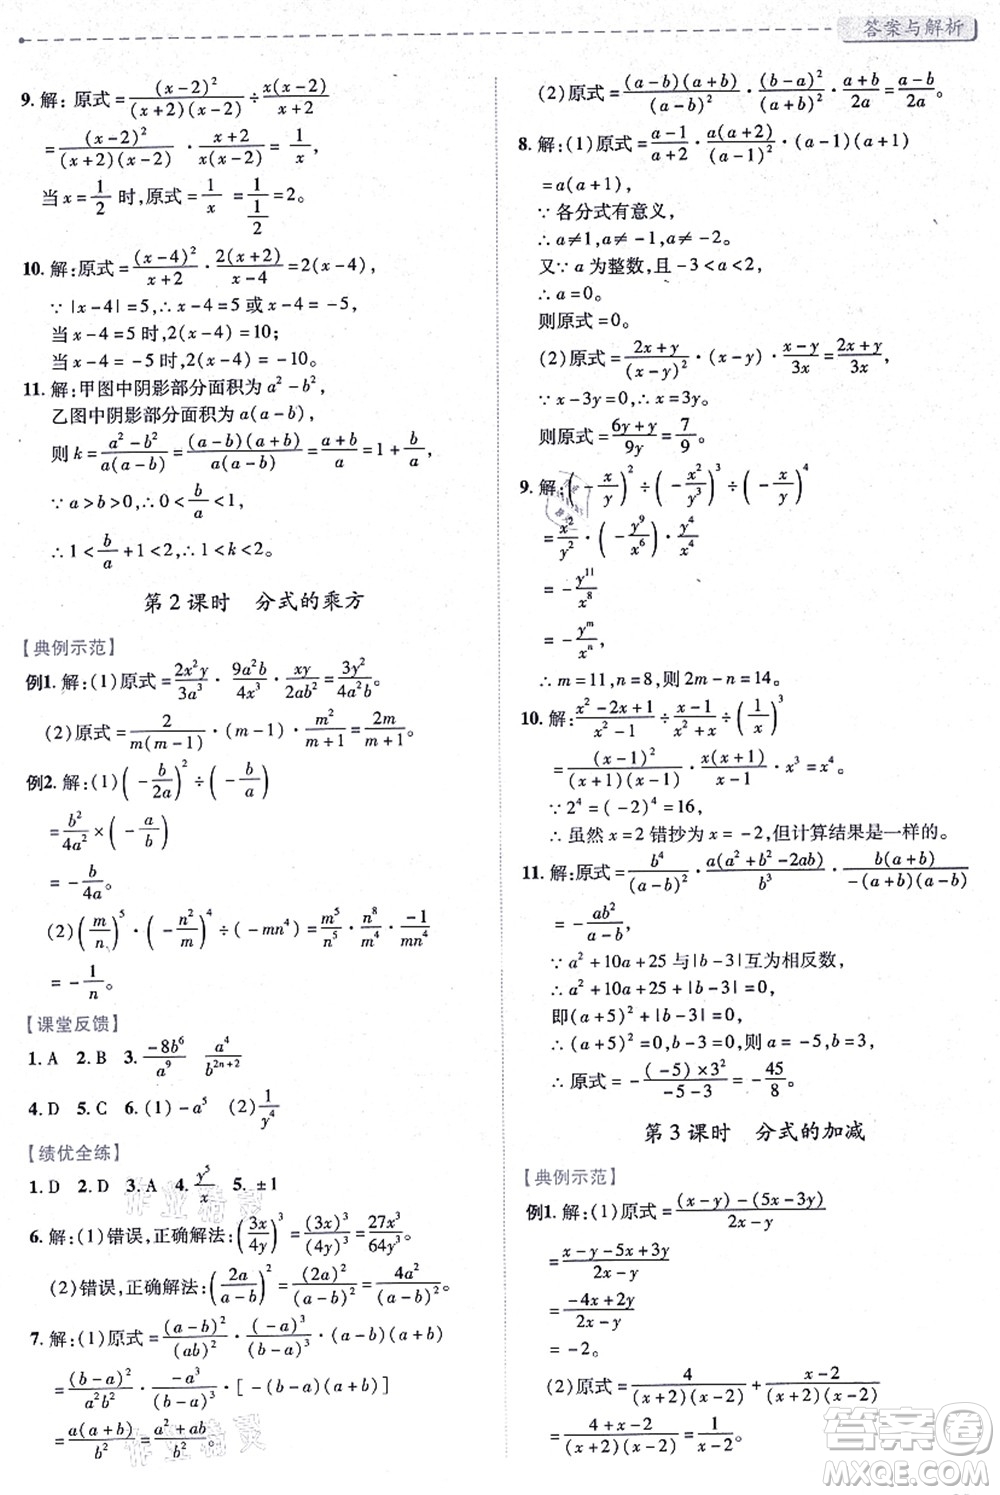 答案与解析
9. 解:原式=(x-2)²/((x+2)(x-2))÷x(x-2)/(x+2)
=(x-2)²/((x+2)(x-2))·(x+2)/(x(x-2))=1/x,
当x=1/2时,原式=1/x=1/(1/2)=2。
10. 解:原式=(x-4)²/(x+2)·2(x+2)/(x-4)=2(x-4),
∵|x-4|=5,∴x-4=5或x-4=-5,
当x-4=5时,2(x-4)=10;
当x-4=-5时,2(x-4)=-10。
11. 解:甲图中阴影部分面积为a²-b²,
乙图中阴影部分面积为a(a-b),
则k=(a²-b²)/(a(a-b))=(a-b)(a+b)/(a(a-b))=(a+b)/a=1+b/a,
∵a>b>0,∴0<b/a<1,
∴1<b/a+1<2,∴1<k<2。
第2课时 分式的乘方
【典例示范】
例1. 解:(1)原式=2x²y/3a³·9a²b/4x³·xy/2ab²=3y²/4a²b。
(2)原式=2/(m(m-1))·(m-1)/(m+1)·m²/1=2m/(m+1)。
例2. 解:(1)(-b/2a)²÷(-b/a)
=b²/4a²×(-a/b)
=-b/4a。
(2)(m/n)⁵·(-n²/m)⁴÷(-mn⁴)=m⁵/n⁵·n⁸/m⁴·-1/mn⁴
=-1/n。
【课堂反馈】
1. A 2. B 3. -8b⁶/a⁹ a⁴/b²ⁿ⁺²
4. D 5. C 6. (1)-a⁵ (2)1/y⁴
【绩优全练】
1. D 2. D 3. A 4. y⁵/x 5. ±1
6. (1)错误,正确解法:(3x/4y)³=(3x)³/(4y)³=27x³/64y³。
(2)错误,正确解法:(2a/(a-b))²=(2a)²/(a-b)²=4a²/(a-b)²。
7. 解:(1)原式=(a-b)²/(ab)²·(-a)³/(b-a)³·(a-b)(a+b)
=(b-a)²/a²b²·-a³/(b-a)³·[-(b-a)(a+b)]
=a(a+b)/b²。
(2)原式=(a-b)(a+b)/(a-b)²·(b-a)²/(a+b)²·(a+b)/2a=(a-b)/2a。
8. 解:(1)原式=(a-1)/(a+2)·a(a+2)/(a-1)²·(a-1)(a+1)
=a(a+1),
∵各分式有意义,
∴a≠1,a≠-1,a≠-2。
又∵a为整数,且-3<a<2,
∴a=0。
则原式=0。
(2)原式=(2x+y)/(x-y)²·(x-y)·(x-y)/3x=(2x+y)/3x,
∵x-3y=0,∴x=3y,
则原式=(6y+y)/9y=7/9。
9. 解:(-x/y)²÷(-x²/y³)³÷(-x/y)⁴
=x²/y²·(-y⁹/x⁶)·y⁴/x⁴
=-y¹¹/x⁸
=-yᵐ/xⁿ,
∴m=11,n=8,则2m-n=14。
10. 解:(x²-2x+1)/(x²-1)÷(x-1)/(x²+x)÷(1/x)³
=(x-1)²/((x+1)(x-1))·x(x+1)/(x-1)·x³=x⁴。
∵2⁴=(-2)⁴=16,
∴虽然x=2错抄为x=-2,但计算结果是一样的。
11. 解:原式=b⁴/(a-b)²·a(a²+b²-2ab)/b³·b(a+b)/(-(a+b)(a-b))
=-ab²/(a-b),
∵a²+10a+25与|b-3|互为相反数,
∴a²+10a+25+|b-3|=0,
即(a+5)²+|b-3|=0,
∴(a+5)²=0,b-3=0,∴a=-5,b=3,
∴原式=-(-5)×3²/(-5-3)=-45/8。
第3课时 分式的加减
【典例示范】
例1. 解:(1)原式=((x-y)-(5x-3y))/(2x-y)
=(x-y-5x+3y)/(2x-y)
=(-4x+2y)/(2x-y)
=-2。
(2)原式=4/((x+2)(x-2))+(x-2)/((x+2)(x-2))
=(4+x-2)/((x+2)(x-2))=1/(x-2)。
作业精灵
作业精灵
答案圈
MXQE.COM